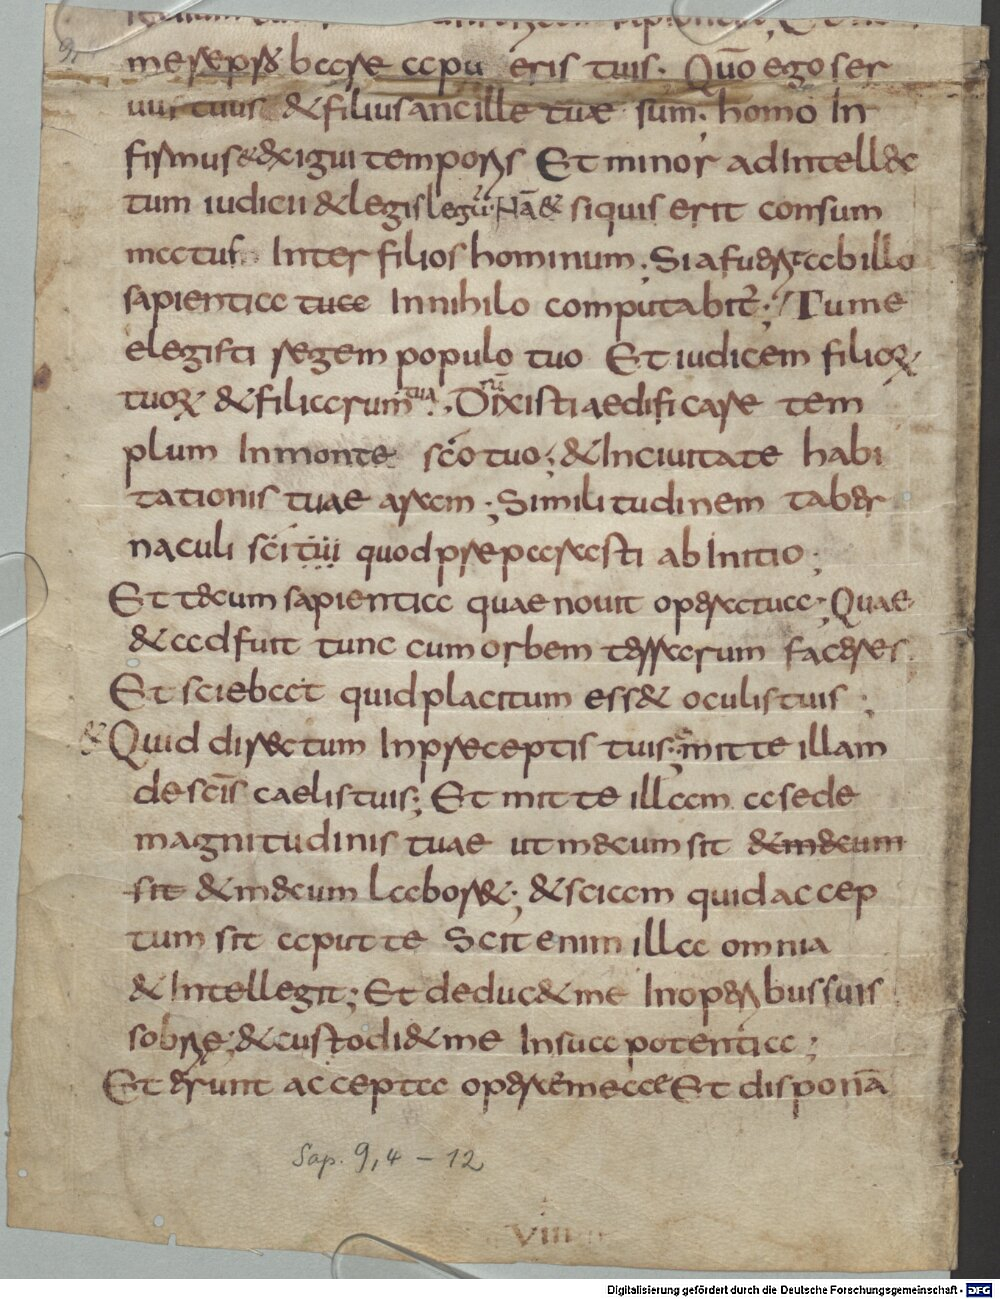 9,
me reprobare a pueris tuis. Quō ego ser
uus tuus & filius ancille tuae sum. homo In
firmus & exigui temporis Et minor ad Intellec
tum iudicii & legis legū. Nā & siquis erit consum
matus Inter filios hominum; Si afuerit ab illo
sapientia tua In nihilo computabit̄; Tu me
elegisti regem populo tuo Et iudicem filiorꝝ
tuorꝝ & filiarum tuarū; Dixisti aedificare tem
plum In monte sc̄o tuo; & In ciuitate habi
tationis tuae aram; Similitudinem taber
naculi sc̄i tui quod preparasti ab Initio;
Et tecum sapientia quae nouit opera tua; Quae
& adfuit tunc cum orbem terrarum faceres.
Et sciebat quid placitum ess& oculis tuis;
& Quid directum In preceptis tuis; mitte illam
de sc̄is caelis tuis; Et mitte illam a sede
magnitudinis tuae ut mecum sit & mecum
sit & mecum labor&; & sciam quid accep
tum sit aput te Scit enim illa omnia
& Intellegit; Et deduc& me In operibus suis
sobrie; & custodi& me In sua potentia;
Et erunt accepta opera mea Et disponā
Sap. 9,4 - 12
VIII
Digitalisierung gefördert durch die Deutsche Forschungsgemeinschaft - DFG